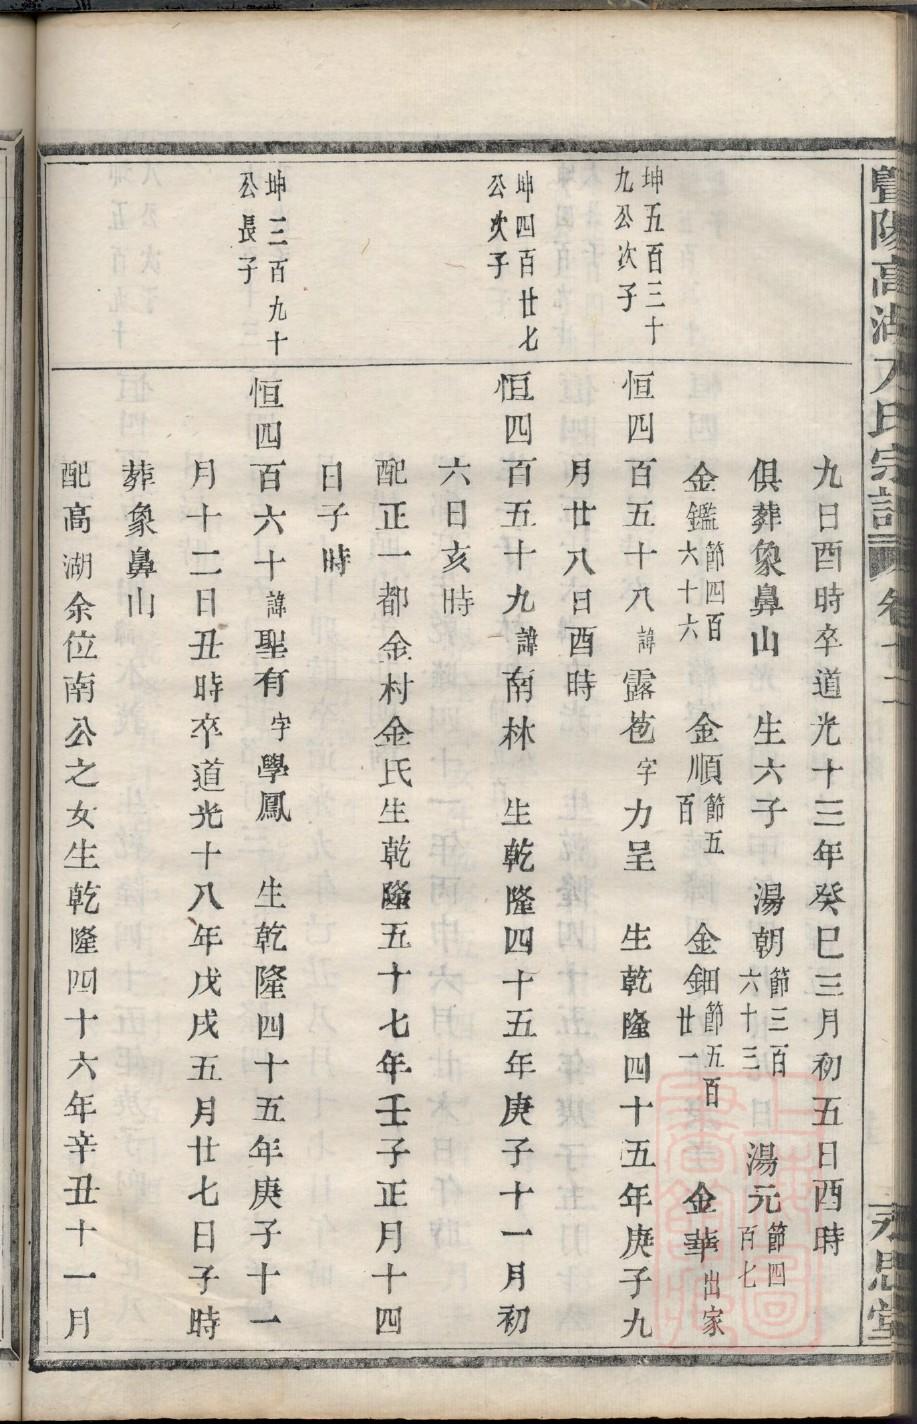 暨陽高湖方氏宗譜 卷十二 永思堂
九日酉時卒道光十三年癸巳三月初五日酉時
俱葬象鼻山 生六子 湯朝節三百六十三 湯元節四百七
金鑑節四百六十六 金順節五百 金鈿節五百廿一 金華出家
坤五百三十九公次子
恒四百五十八諱露苞字力呈 生乾隆四十五年庚子九
月廿八日酉時
坤四百廿七公次子
恒四百五十九諱南林 生乾隆四十五年庚子十一月初
六日亥時
配正一都金村金氏生乾隆五十七年壬子正月十四
日子時
坤三百九十公長子
恒四百六十諱聖有字學鳳 生乾隆四十五年庚子十一
月十二日丑時卒道光十八年戊戌五月廿七日子時
葬象鼻山
配高湖余位南公之女生乾隆四十六年辛丑十一月